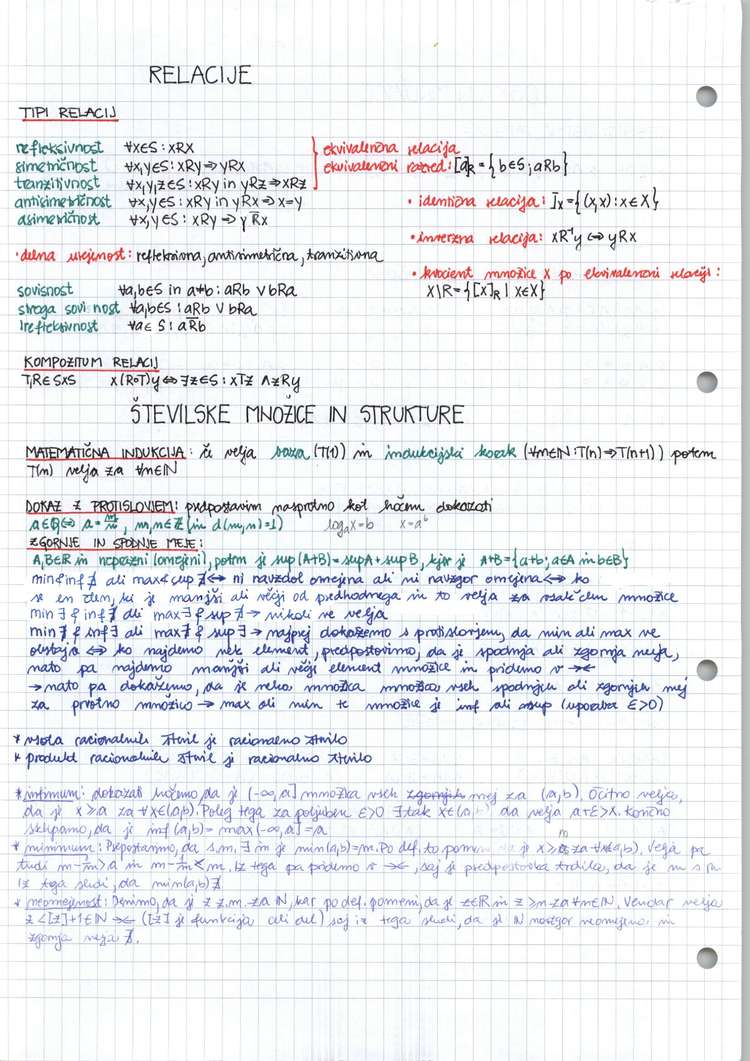 RELACIJE
TIPI RELACIJ
refleksivnost ∀x∈S : xRx
simetričnost ∀x,y∈S : xRy ⇒ yRx
tranzitivnost ∀x,y,z∈S : xRy in yRz ⇒ xRz
antisimetričnost ∀x,y∈S : xRy in yRx ⇒ x=y
asimetričnost ∀x,y∈S : xRy ⇒ y R̄x
ekvivalenčna relacija
ekvivalenčni razred: [a]R = {b∈S ; aRb}
• identična relacija: Ix = {(x,x) : x∈X}
• inverzna relacija: xR⁻¹y ⇔ yRx
• kvocient množice X po ekvivalenčni relaciji :
X\R = {[x]R | x∈X}
• delna urejenost : refleksivna, antisimetrična, tranzitivna
sovisnost ∀a,b∈S in a≠b : aRb ∨ bRa
stroga sovisnost ∀a,b∈S : aRb ∨ bRa
irefleksivnost ∀a∈S : aR̄b
KOMPOZITUM RELACIJ
T,R∈S×S x(R∘T)y ⇔ ∃z∈S : xTz ∧ zRy
ŠTEVILSKE MNOŽICE IN STRUKTURE
MATEMATIČNA INDUKCIJA : če velja baza (T(1)) in indukcijski korak (∀n∈ℕ : T(n)⇒T(n+1)) potem
T(n) velja za ∀n∈ℕ
DOKAZ Z PROTISLOVJEM: predpostavim nasprotno kot hočem dokazati
a∈ℚ ⇔ a = m/n , m,n∈ℤ (in d(m,n)=1) logₐx=b x=aᵇ
ZGORNJE IN SPODNJE MEJE :
A,B∈ℝ in neprazni (omejeni), potem je sup(A+B) = supA + supB, kjer je A+B = {a+b ; a∈A in b∈B}
min & inf ∄ ali max & sup ∄ ⇔ ni navzdol omejena ali ni navzgor omejena ⇔ ko
se en člen, ki je manjši ali večji od predhodnega in to velja za vsak člen množice
min ∃ & inf ∄ ali max ∃ & sup ∄ → nikoli ne velja
min ∄ & inf ∃ ali max ∄ & sup ∃ → najprej dokažemo s protislovjem, da min ali max ne
obstaja ⇔ ko najdemo nek element, predpostavimo, da je spodnja ali zgornja meja,
nato pa najdemo manjši ali večji element množice in pridemo v →←
→ nato pa dokažemo, da je neka množica množica vseh spodnjih ali zgornjih mej
za prvotno množico → max ali min te množice je inf ali sup (uporaba ε>0)
* vsota racionalnih števil je racionalno število
* produkt racionalnih števil je racionalno število
* infimum: dokazati hočemo, da je (-∞,a] množica vseh mej za (a,b). Očitno velja,
da je x≥a za ∀x∈(a,b). Poleg tega za poljuben ε>0 ∃ tak x∈(a,b) da velja a+ε>x. Končno
sklepamo, da je inf(a,b) = max(-∞,a] = a
* minimum: Predpostavimo, da s.m. ∃ in je min(a,b)=m. Po def. to pomeni, da je x≥m za ∀x∈(a,b). Velja pa
tudi m-1/n>a in m-1/n<m. Iz tega pa pridemo v →←, saj je predpostavka trdila, da je m s.m.
Iz tega sledi, da min(a,b) ∄.
* neomejenost: Denimo, da je z z.m. za ℕ, kar po def. pomeni, da je z∈ℝ in z≥n za ∀n∈ℕ. Vendar velja
z<[z]+1∈ℕ →← ([z] je funkcija celi del) saj iz tega sledi, da je ℕ navzgor neomejena in
zgornja meja ∄.